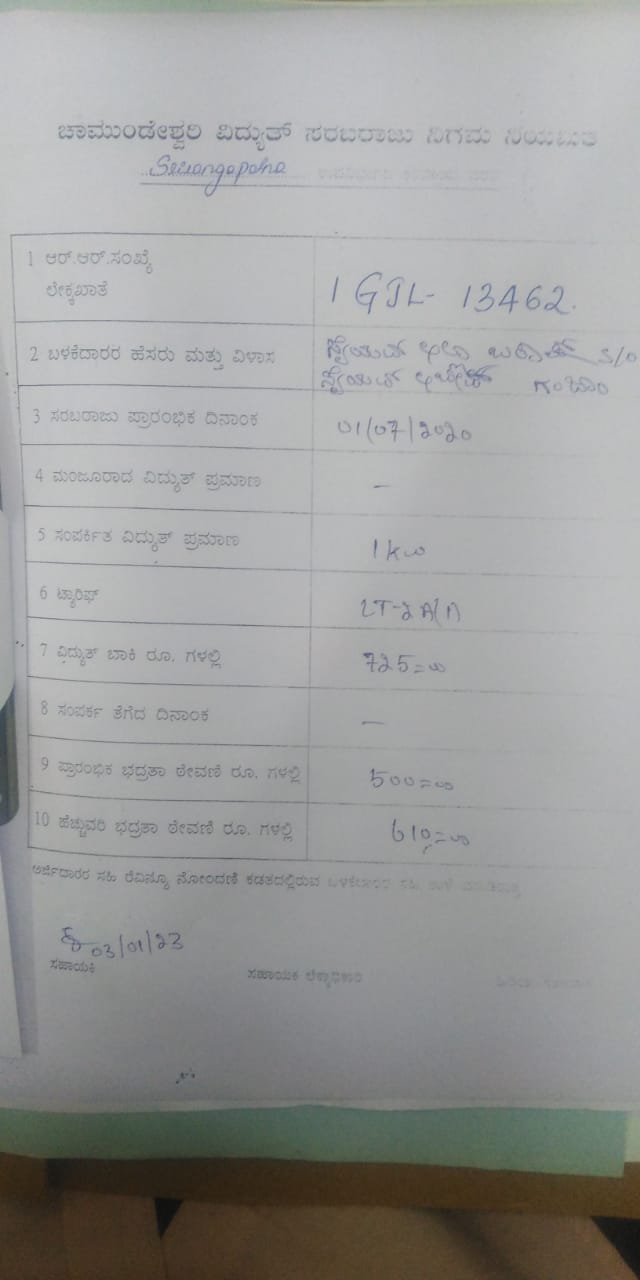 ಚಾಮುಂಡೇಶ್ವರಿ ವಿದ್ಯುತ್ ಸರಬರಾಜು ನಿಗಮ ನಿಯಮಿತ
1 ಆರ್.ಆರ್.ಸಂಖ್ಯೆ
ಲೆಕ್ಕಖಾತೆ
1 GJL- 13462.
2 ಬಳಕೆದಾರರ ಹೆಸರು ಮತ್ತು ವಿಳಾಸ
ಸೈಯದ್ S/O
ಸೈಯದ್ ಗಂಜಾಂ
3 ಸರಬರಾಜು ಪ್ರಾರಂಭಿಕ ದಿನಾಂಕ
01/07/2020
4 ಮಂಜೂರಾದ ವಿದ್ಯುತ್ ಪ್ರಮಾಣ
—
5 ಸಂಪರ್ಕಿತ ವಿದ್ಯುತ್ ಪ್ರಮಾಣ
1kw
6 ಟ್ಯಾರಿಫ್
LT-2A(1)
7 ವಿದ್ಯುತ್ ಬಾಕಿ ರೂ. ಗಳಲ್ಲಿ
725=00
8 ಸಂಪರ್ಕ ತೆಗೆದ ದಿನಾಂಕ
—
9 ಪ್ರಾರಂಭಿಕ ಭದ್ರತಾ ಠೇವಣಿ ರೂ. ಗಳಲ್ಲಿ
500=00
10 ಹೆಚ್ಚುವರಿ ಭದ್ರತಾ ಠೇವಣಿ ರೂ. ಗಳಲ್ಲಿ
610=00
ಅರ್ಜಿದಾರರ ಸಹಿ ರೆವಿನ್ಯೂ ನೋಂದಣಿ ಕಡತದಲ್ಲಿರುವ ಬಳಕೆದಾರರ ಸಹಿ
03/01/23
ಸಹಾಯಕಿ
ಸಹಾಯಕ ಲೆಕ್ಕಾಧಿಕಾರಿ